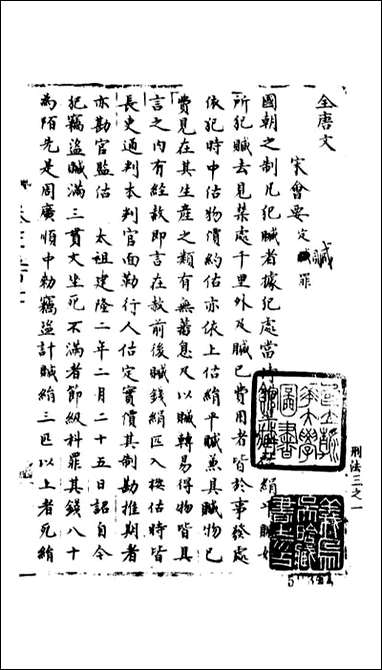 全唐文
宋會要 定贓罪
贓
國朝之制凡犯贓者據犯處當時物價上估絹平贓如
所犯贓去見禁處千里外及贓已費用者皆於事發處
依犯時中估物價約估亦依上估絹平贓兼具贓物已
費見在其生產之類有無蕃息及以贓轉易得物皆具
言之內有經赦即言在赦前後贓錢絹匹入授估時皆
長吏通判本判官面勒行人估定實價其制勘推期者
亦勘官監估 太祖建隆二年二月二十五日詔自今
犯竊盜贓滿三貫文坐死不滿者節級科罪其錢八十
為陌先是周廣順中勅竊盜計贓絹三匹以上者死絹
刑法三之一